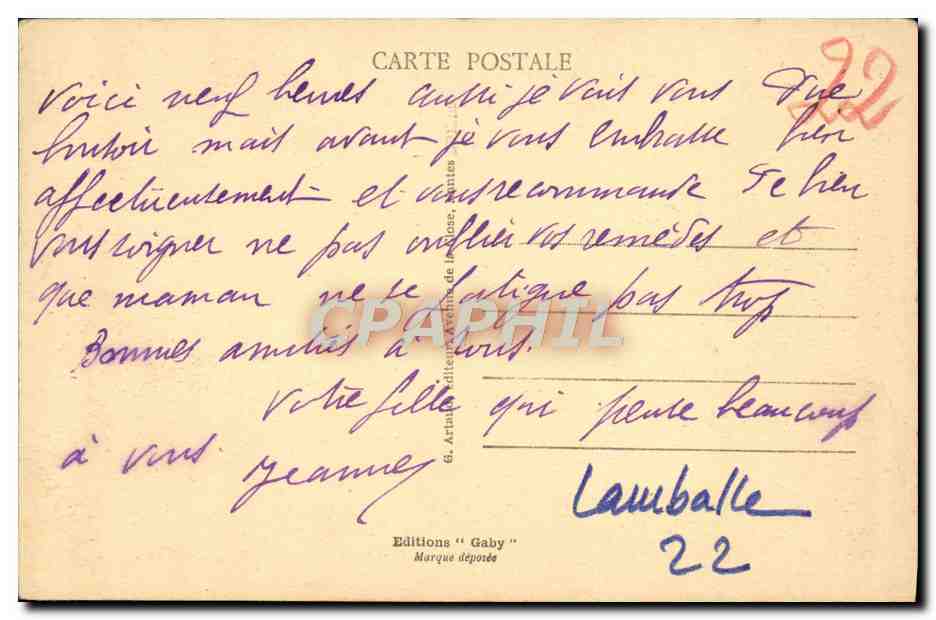 CARTE POSTALE
22
Voici neuf heures aussi je vais vous dire
bonsoir mais avant je vous embrasse bien
affectueusement et vous recommande de bien
vous soigner ne pas oublier vos remèdes et
que maman ne se fatigue pas trop
Bonnes amitiés à tous.
Votre fille qui pense beaucoup
à vous.
Jeanne
G. Artaud, éditeur, Avenue de la Close, Nantes
CPAPHIL
Lamballe
22
Editions " Gaby "
Marque déposée